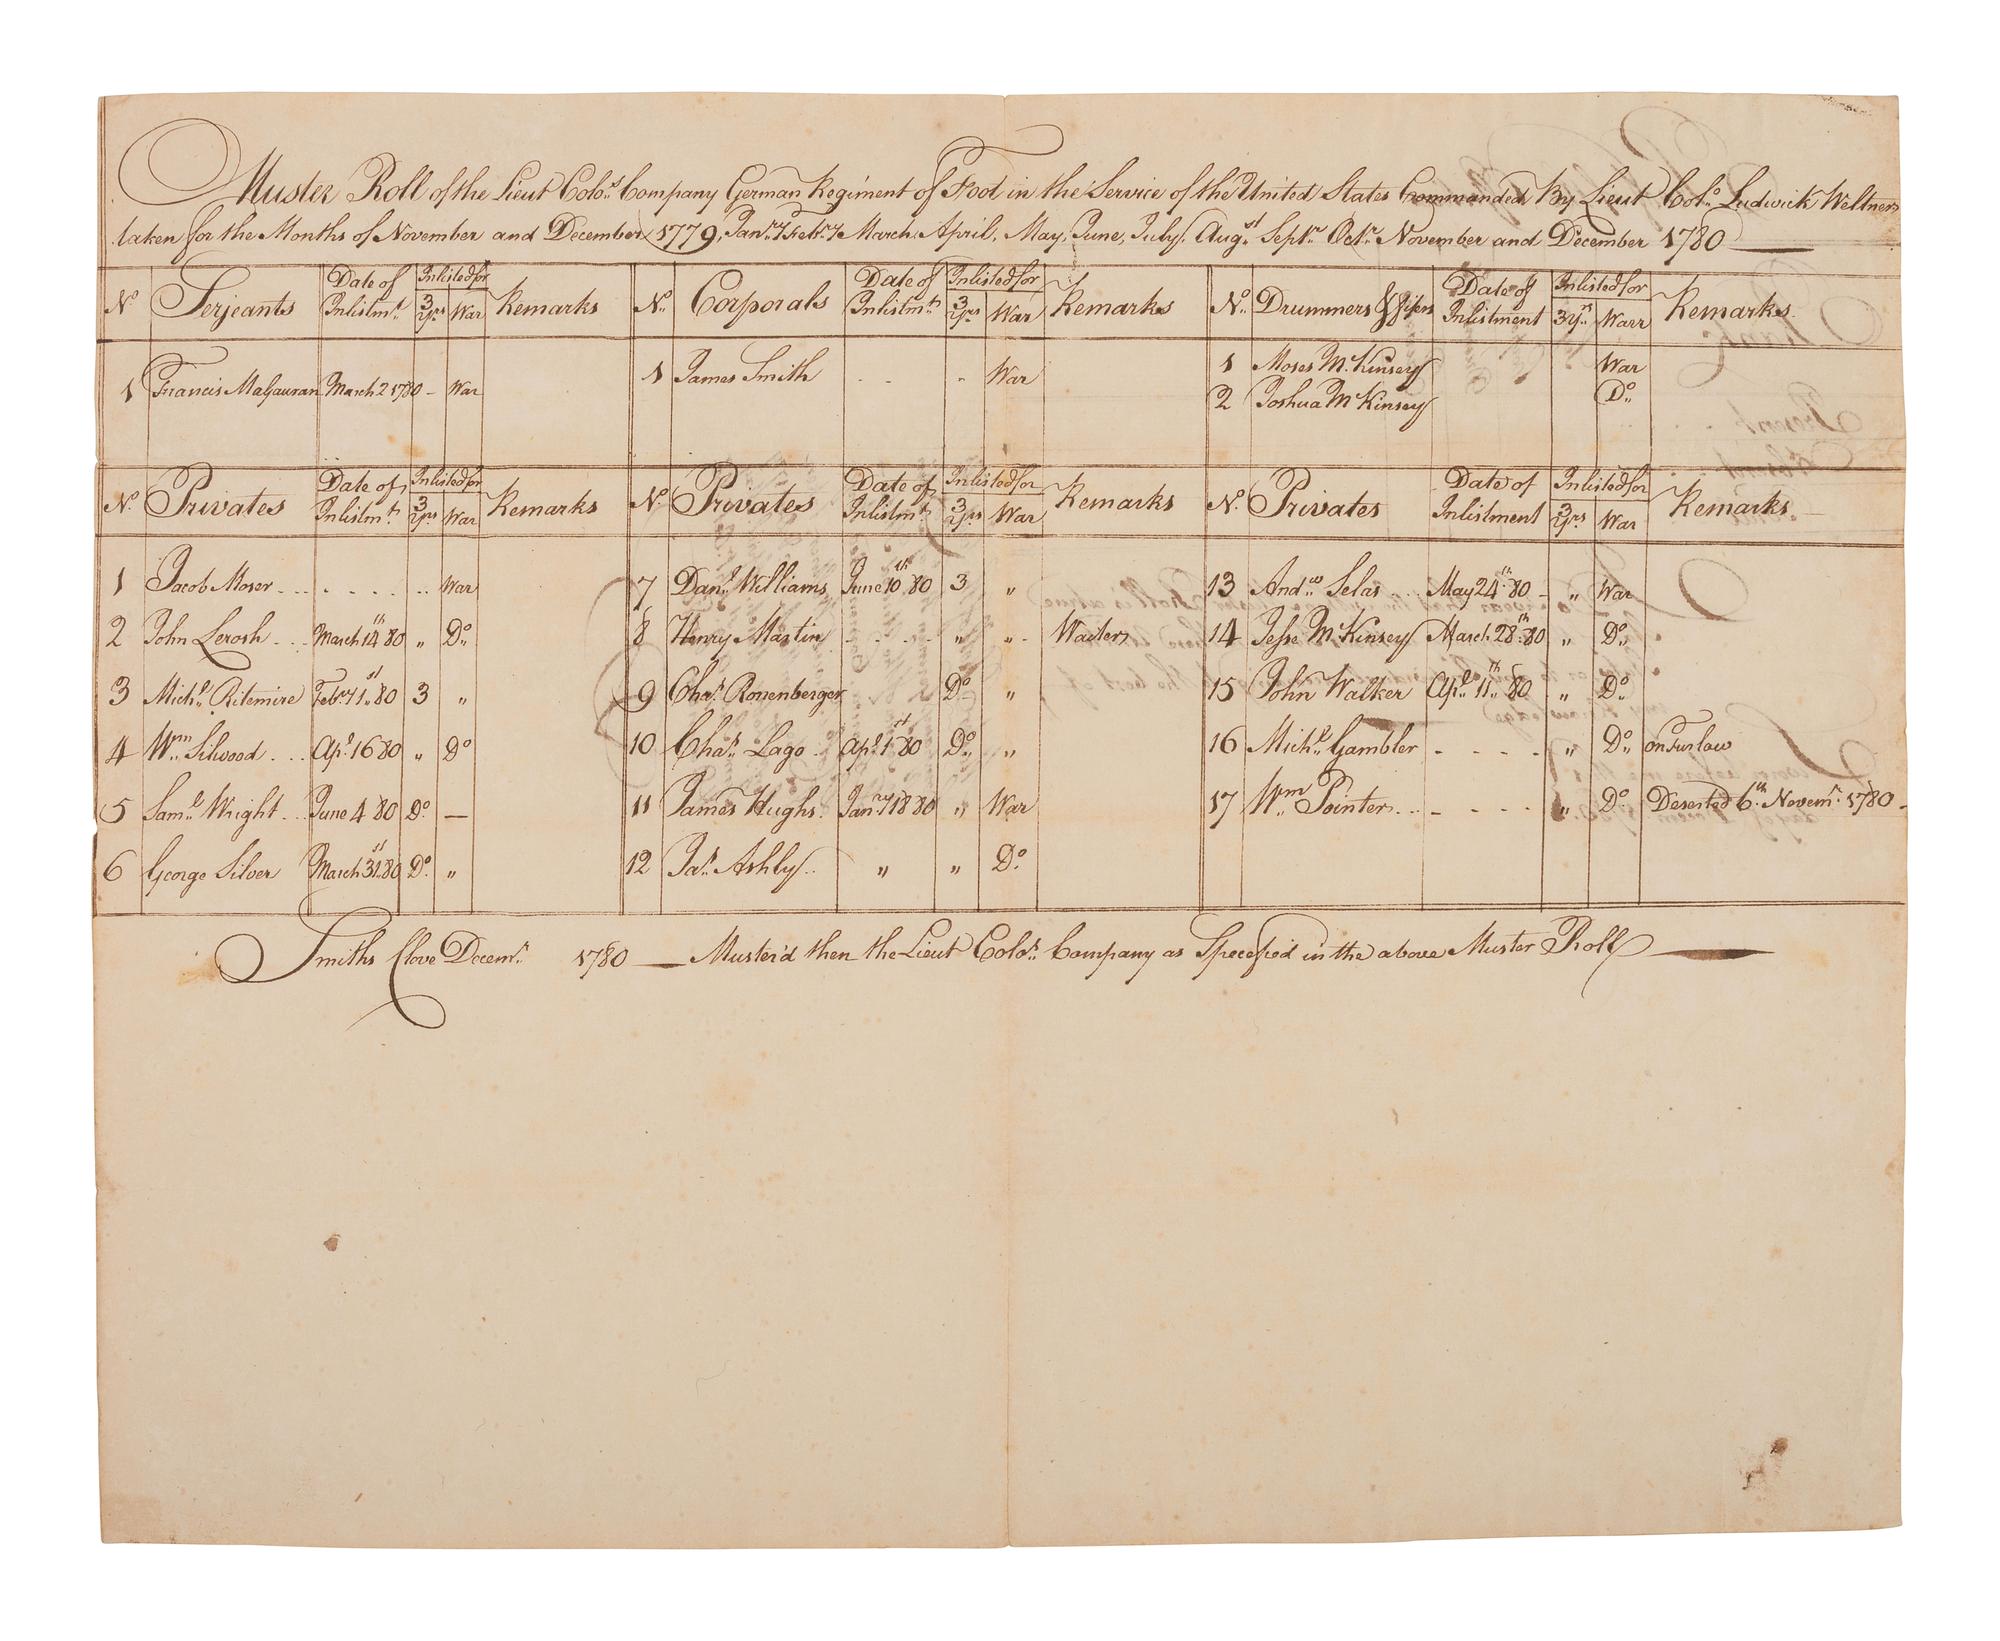 Muster Roll of the Lieut Colo.s Company German Regiment of Foot in the Service of the United States Commanded By Lieut Colo. Ludwick Weltner
taken for the Months of November and December 1779, Janry Febry March April, May, June, July, Augst Septr. Octr. November and December 1780
No. Serjeants Date of Inlistmt. Inlisted for 3 Yrs War Remarks No. Corporals Date of Inlistmt. Inlisted for 3 Yrs War Remarks No. Drummers & fifers Date of Inlistment Inlisted for 3 Yrs Warr Remarks
1 Francis Malgauran March 2 1780 - War 1 James Smith - - - War 1 Moses Mc.Kinsey War
2 Joshua McKinsey Do.
No. Privates Date of Inlistmt. Inlisted for 3 Yrs War Remarks No. Privates Date of Inlistmt. Inlisted for 3 Yrs War Remarks No. Privates Date of Inlistment Inlisted for 3 Yrs War Remarks
1 Jacob Moser . . . . . . . . War 7 Danl. Williams June 10th 80 3 " 13 Andw Selas May 24th. 80 - " War
2 John Lerosh . . . March 14th 80 " Do. 8 Henry Martin - - - - " " Waiter 14 Jesse McKinsey March 28th. 80 " Do.
3 Michl. Ritemire Febry 1st. 80 3 " 9 Chas. Ronenberger Do. " 15 John Walker Apl. 11th. 80 " Do.
4 Wm. Silwood . . . Apl. 16 80 " Do 10 Chas. Lago Apl. 1st 80 Do. " 16 Michl. Gambler - - - - " Do. on Furlow
5 Saml. Wright . . June 4 80 Do. — 11 James Hughs. Janry 18 80 " War 17 Wm. Pointer . . - - - - " Do. Deserted 6th. Novemr. 1780 -
6 George Silver March 31st. 80 Do. " 12 Jas. Ashby . . " " Do.
Smiths Clove Decemr. 1780 — Muster'd then the Lieut Colos. Company as Specefied in the above Muster Roll —